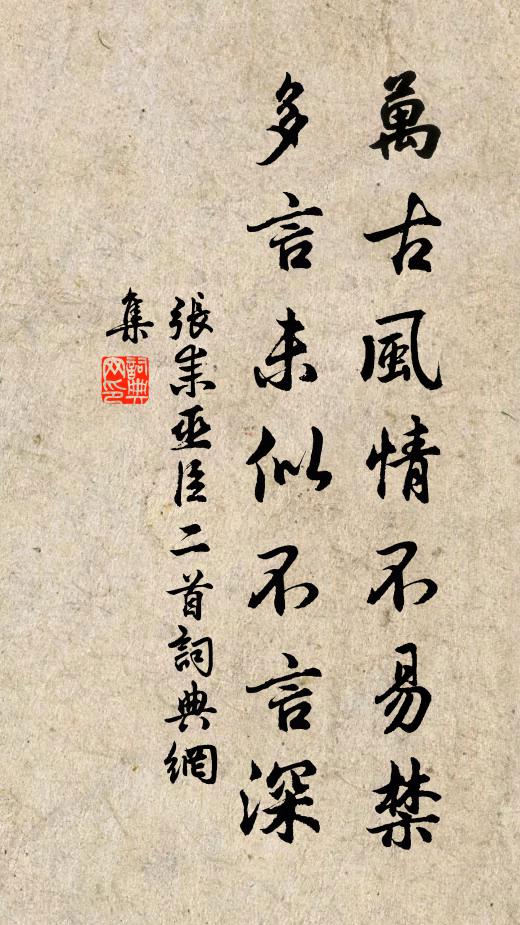 萬古風情不易禁
多言未似不言深
張耒巫臣二首詞典網
集
詞典
网印